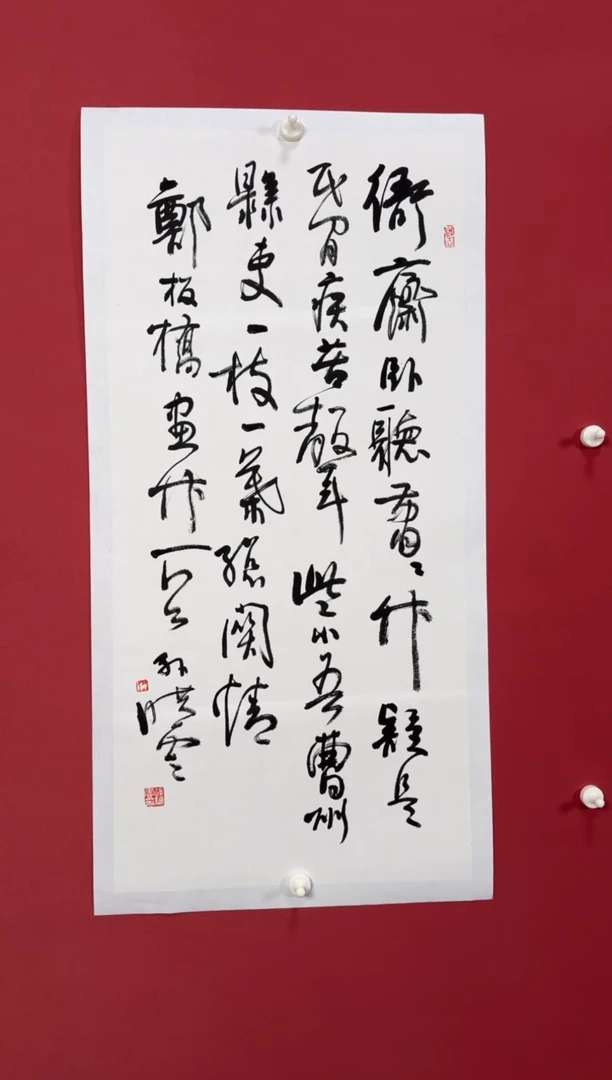 衙齋臥聽蕭〻竹疑是
民間疾苦聲些小吾曹州
縣吏一枝一葉總關情
鄭板橋畫竹一